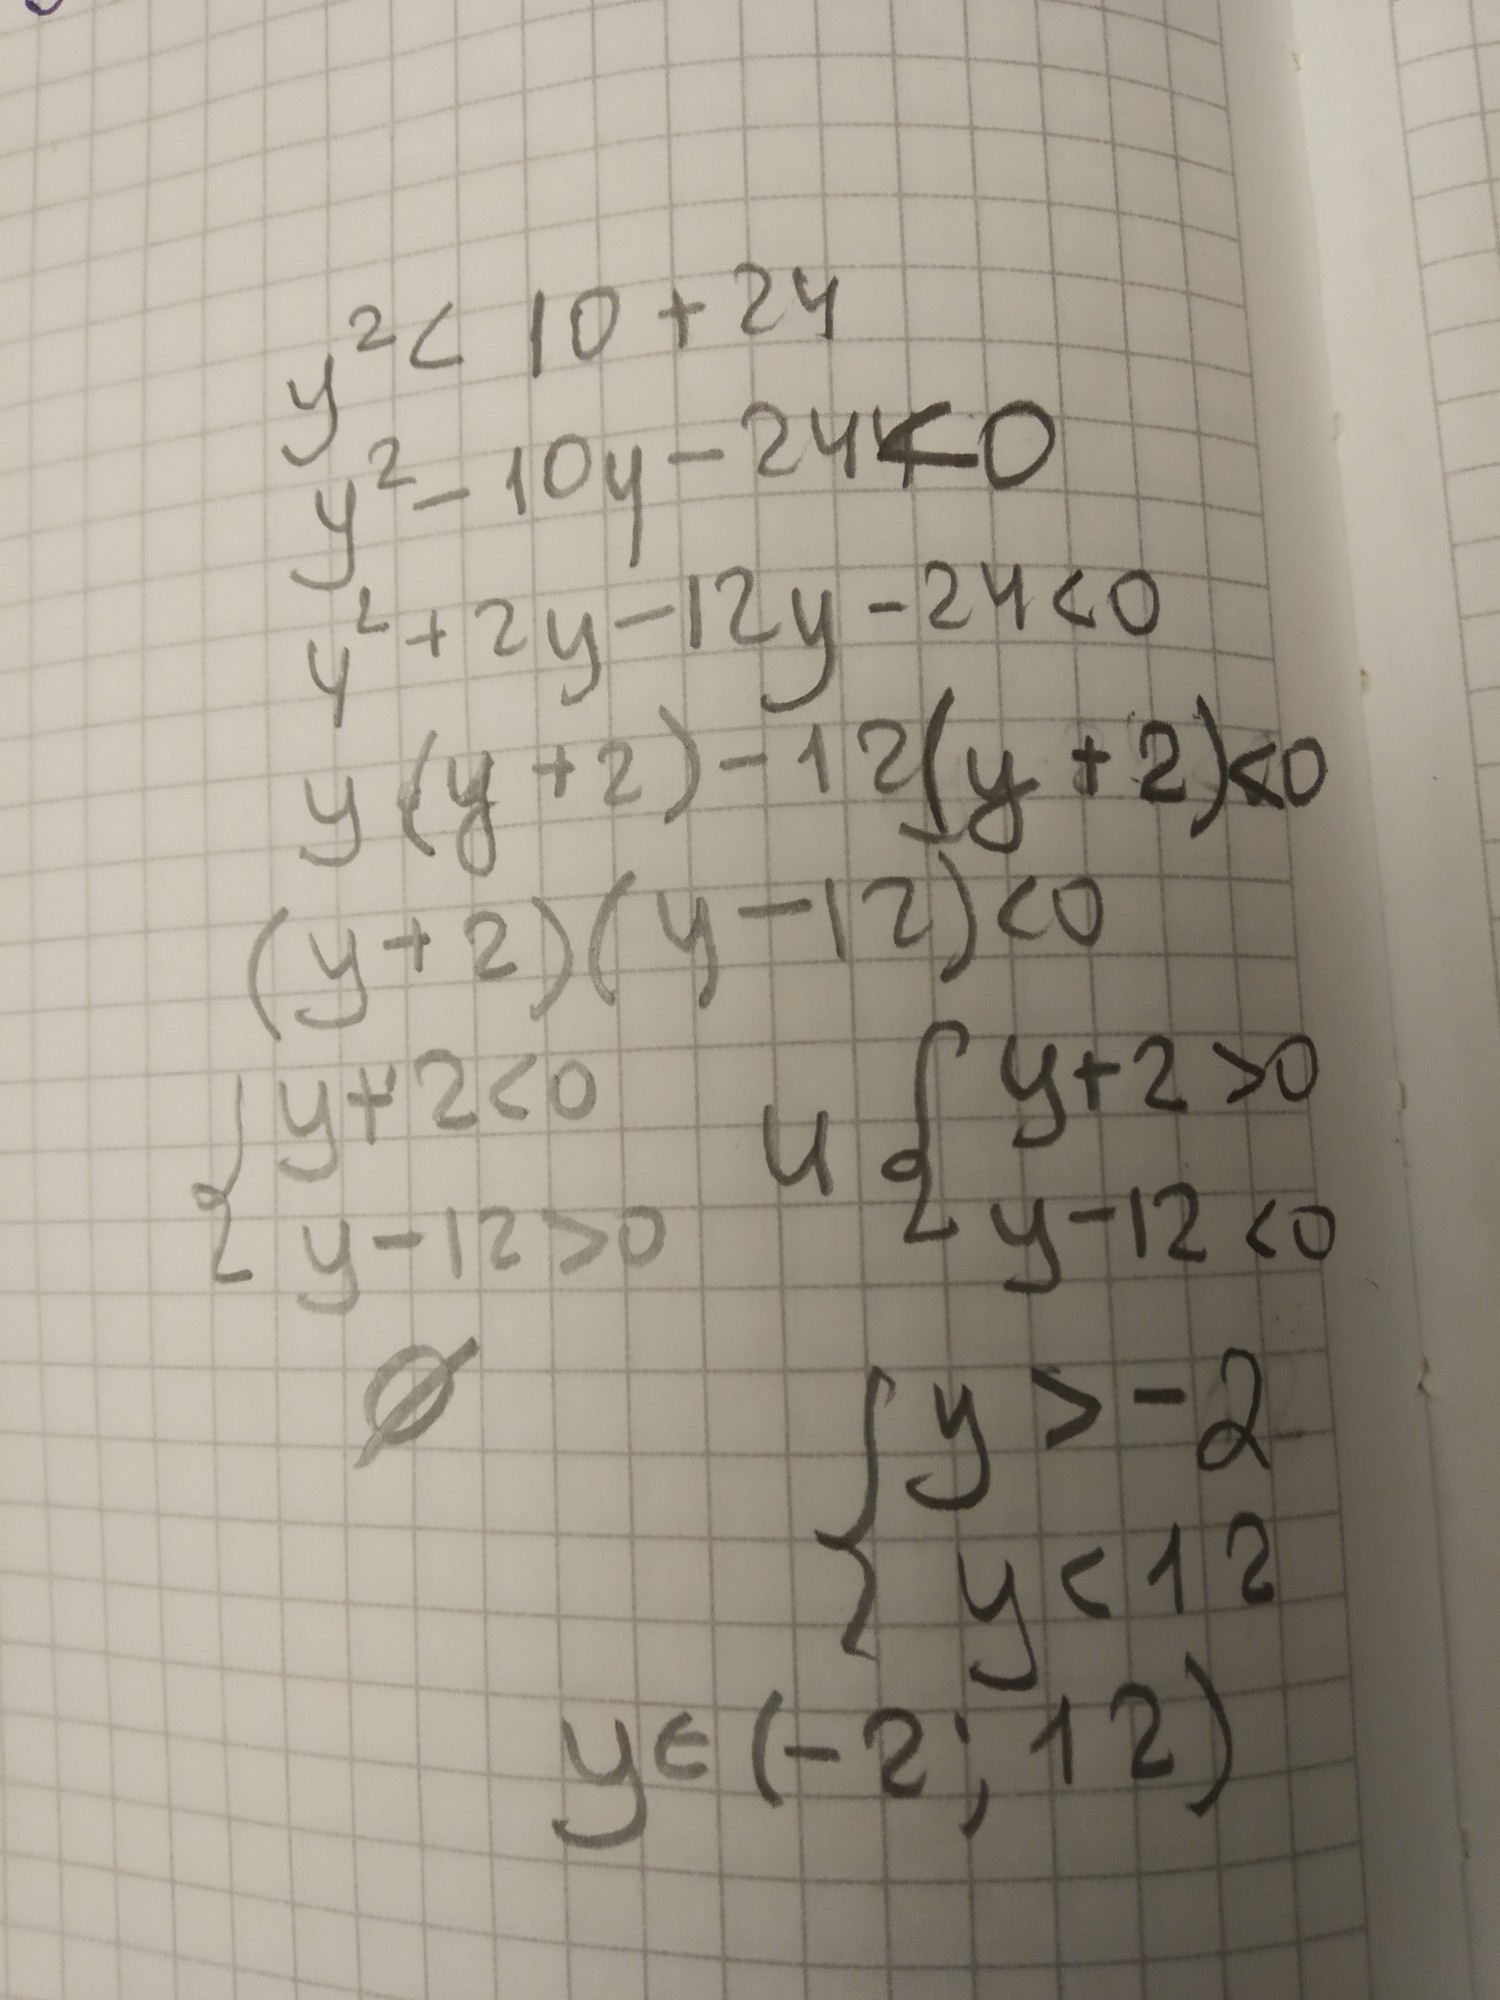 y² < 10 + 24
y² - 10y - 24 < 0
y² + 2y - 12y - 24 < 0
y (y + 2) - 12 (y + 2) < 0
(y + 2) (y - 12) < 0
{ y + 2 < 0 и { y + 2 > 0
y - 12 > 0 y - 12 < 0
∅ { y > -2
y < 12
y ∈ (-2; 12)